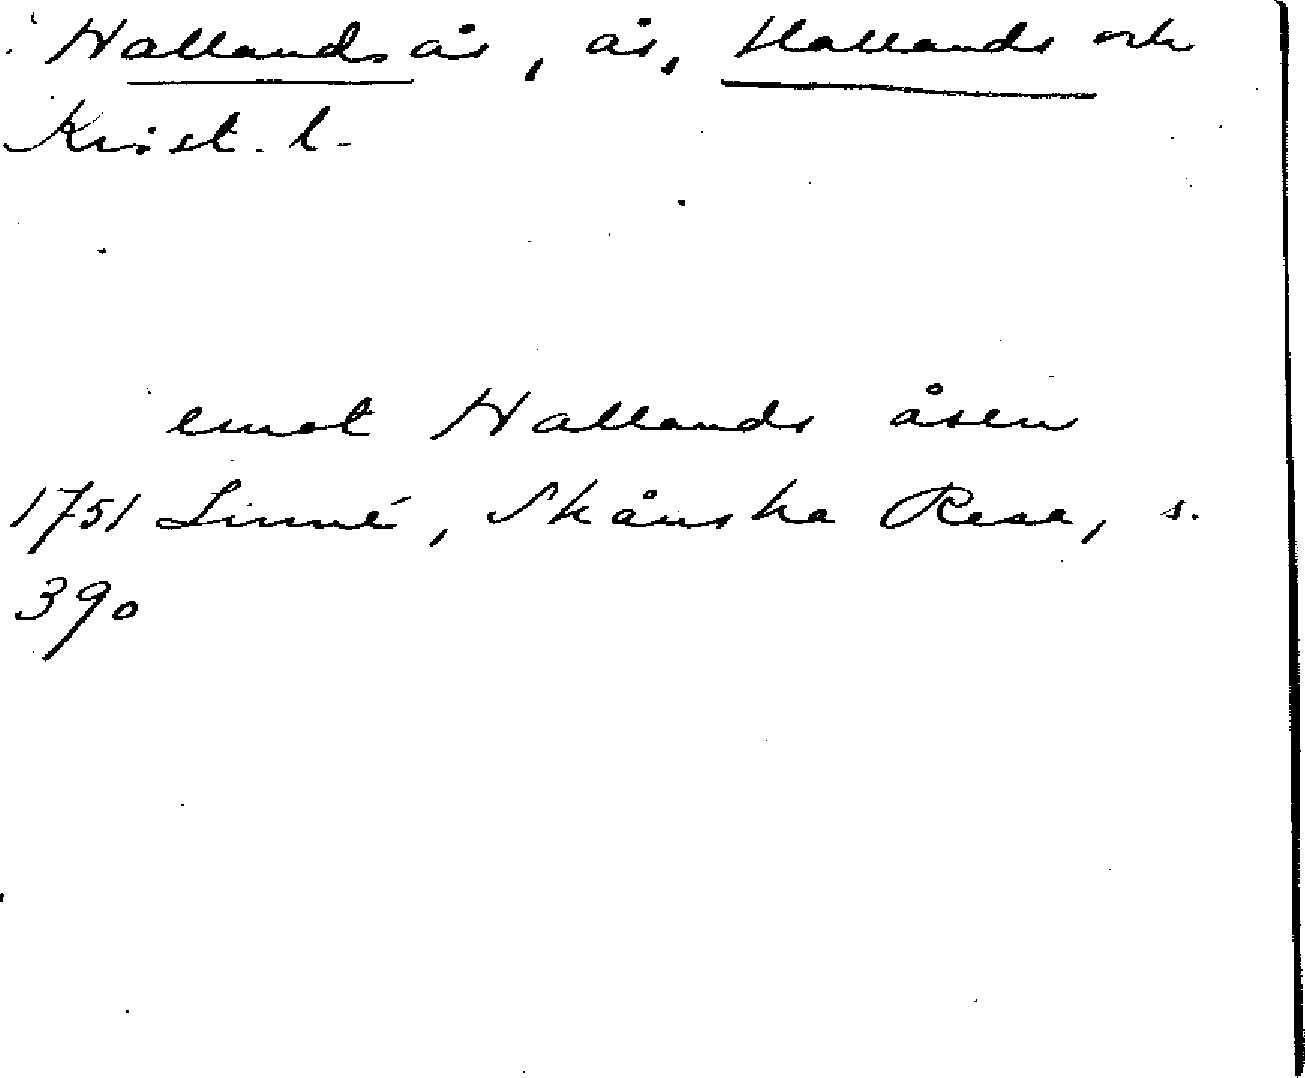 Hallandsås, ås, Hallands och
Krist. l.
emot Hallands åsen
1751 Linné, Skånska Resa, s.
390